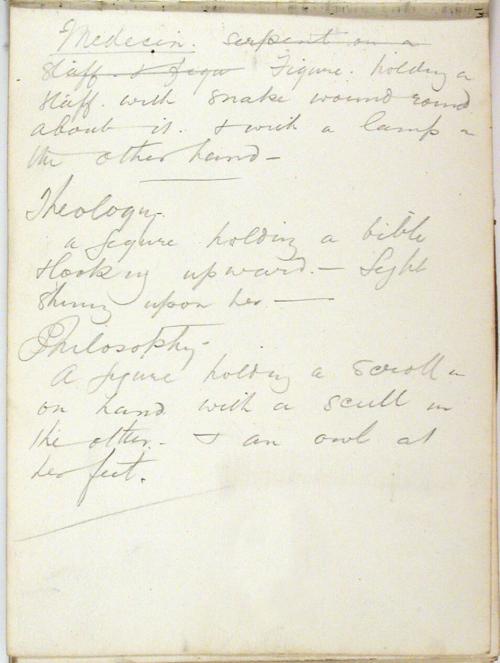 Medecin. serpent on a
staff. & figu Figure. holding a
staff. with snake wound round
about it. & with a lamp in
the other hand —
Theology.
a figure holding a bible
& looking upward. — Light
shining upon her —
Philosophy —
A figure holding a scroll in
on hand with a scull in
the other. — & an owl at
her feet.